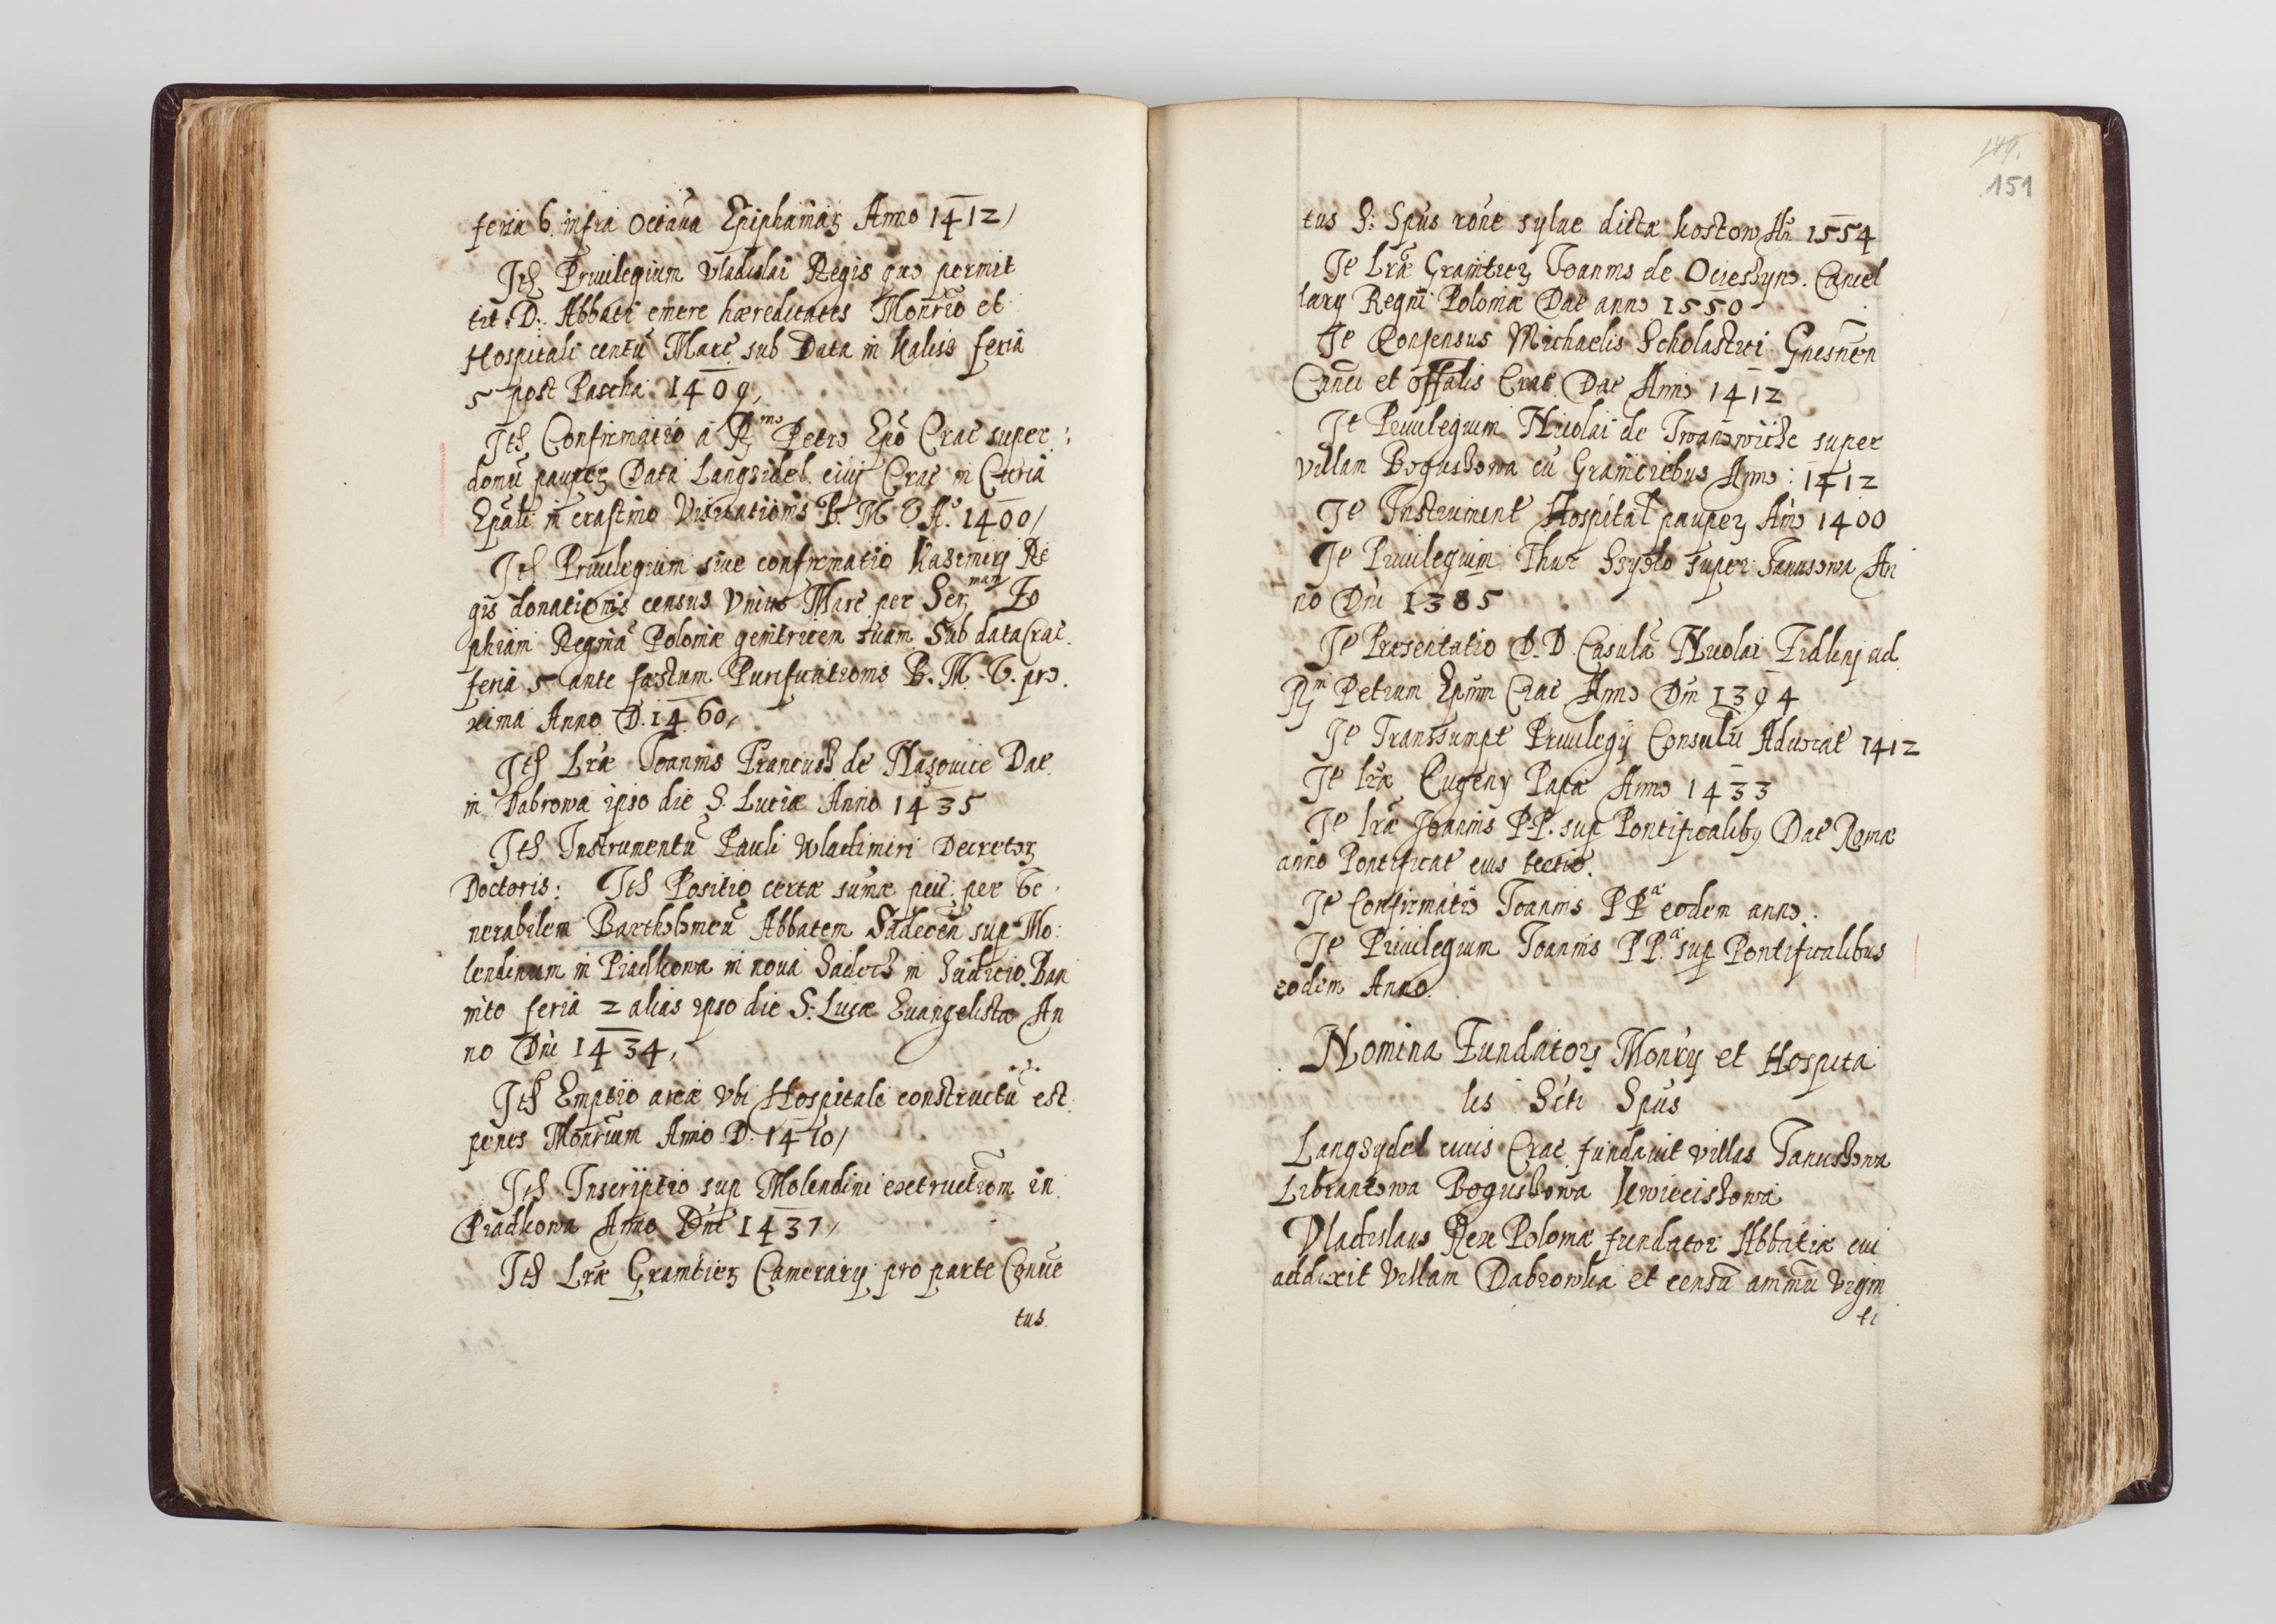 feria 6. infra Octaua Epiphaniaꝝ Anno 1412/
Itē Priuilegium Vladislai Regis quo permit
tit. D: Abbati emere hæreditates Monrio et
Hospitali centū Marc sub Data in Kalisz feria
5 post Pascha 1409,
Itē Confirmatio a Rmo Petro Epō Crac super
domū paupeꝝ Data Langzidel. ciuj Crac in Curia
Epāli in crastino Visitationis B. M V A. 1400/
Itē Priuilegium siue confirmatio Kazimirj Re
gis donationis census Vnius Marc per Ser man Zo
phiam Reginā Poloniæ genitricem suam Sub data Crac.
feria 5 ante festum Purificationis B. M. V. pro
xima Anno D. 1460,
Itē Lræ Joannis Prancusz de Nasouice Dat
in Dabrowa ipso die S. Luciæ Anno 1435
Itē Instrumentū Pauli Wladimiri Decretoꝝ
Doctoris: Itē Positio certæ sumæ peū: per Ve
nerabilem Bartholomeū Abbatem Sadecen̄ sup Mo:
lendinum in Piadkowa in noua Sadecz in Judicio Ban
nito feria 2 alias ipso die S. Lucæ Euangelistæ An
no Dni 1434,
Itē Emptio areæ vbi Hospitale constructū est
penes Monrium Anno D. 1410/
Itē Inscriptio sup Molendini extructiom in
Piadkowa Anno Dni 1437,
Itē Lræ Granicieꝝ Camerarij pro parte Conue
tus.
149.
151
tus S: Spūs rōne syluæ dictæ kostow An 1554
It Lræ Granicieꝝ Joannis de Ocieszyno. Cancel
larij Regni Poloniæ Dat anno 1550
It Consensus Michaelis Scholastici Gnesnen
Canci et offālis Crac Dat Anno 1412
It Priuilegium Nicolai de Iwanowicze super
villam Boguszowa cū Graniciebus Anno: 1412
It Instrument Hospital paupeꝝ Anō 1400
It Priuilegium Thur Szyblo super Januszowa An
no Dni 1385
It Præsentatio D. D. Casula Nicolai Fidlinj ad
Rm Petrum Epum Crac Anno Dni 1394
It Transsumpt Priuilegij Consulū Aduocat 1412
It lræ Eugenij Papæ Anno 1433
It lræ Joannis PP. sup Pontificalibꝰ Dat Romæ
anno Pontificat eius tertio.
It Confirmatio Joannis PPa eodem anno.
It Priuilegium Joannis PPa. sup Pontificalibus
eodem Anno.
Nomina Fundatoꝝ Monrij et Hospita
lis Scti Spūs
Langzydel ciuis Crac fundauit villas Januszowa
Librantowa Boguszowa kwieciszowa
Vladislaus Rex Poloniæ fundator Abbatiæ cui
addixit Villam Dabrowka et censū annuū Vigin
ti